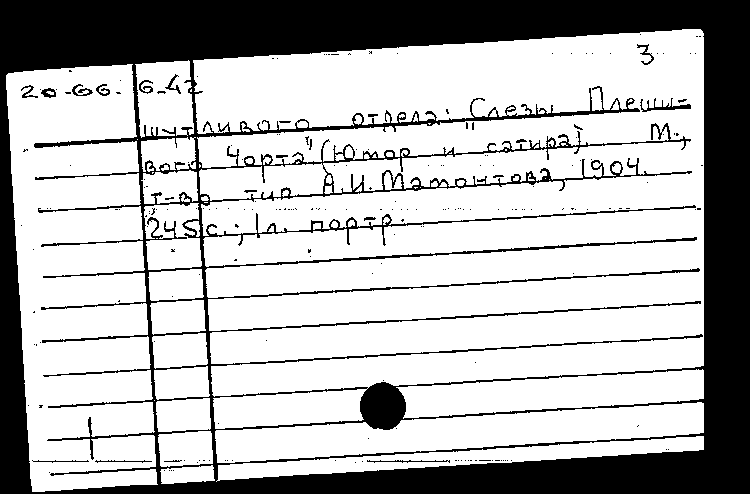 3
20.66. 6-42
шутливого отдела: "Слезы Плеши-
вого Чорта" (Юмор и сатира). М.,
т-во тип А.И. Мамонтова, 1904.
245с.; 1л. портр.